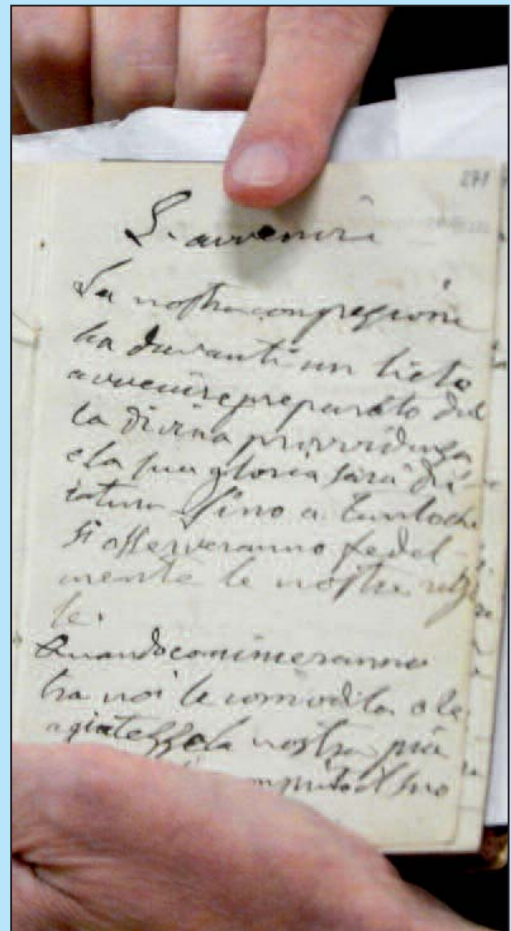 271
L'avvenire
La nostra congregazione
ha davanti un lieto
avvenire preparato dal
la divina provvidenza
e la sua gloria sarà di
fino a tantoche
si osserveranno fedel
mente le nostre rego
le.
Quando cominceranno
tra noi le comodità o le
agiatezze la nostra pia
compito il suo